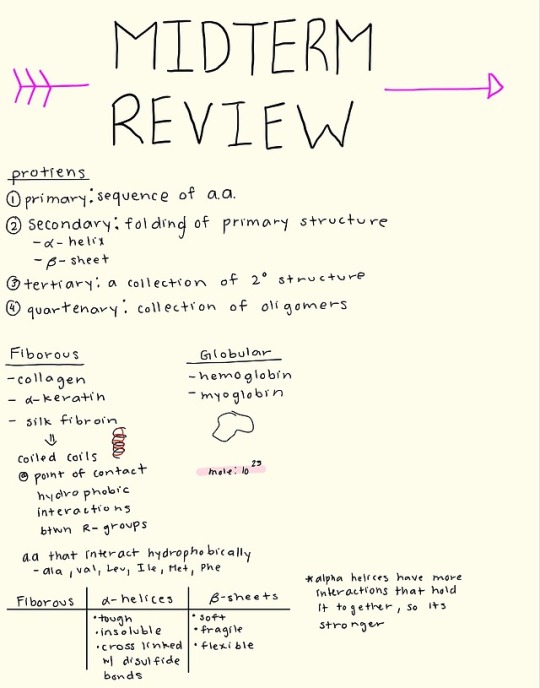 MIDTERM
REVIEW
protiens
① primary: sequence of a.a.
② secondary: folding of primary structure
- α-helix
- β-sheet
③ tertiary: a collection of 2° structure
④ quartenary: collection of oligomers
Fiborous
- collagen
- α-keratin
- silk fibroin
⇓
coiled coils
@ point of contact
hydrophobic
interactions
btwn R-groups
Globular
- hemoglobin
- myoglobin
mole: 10²³
aa that interact hydrophobically
- ala, val, Leu, Ile, Met, Phe
Fiborous α-helices β-sheets
• tough • soft
• insoluble • fragile
• cross linked • flexible
w/ disulfide
bonds
*alpha helices have more
interactions that hold
it together, so its
stronger